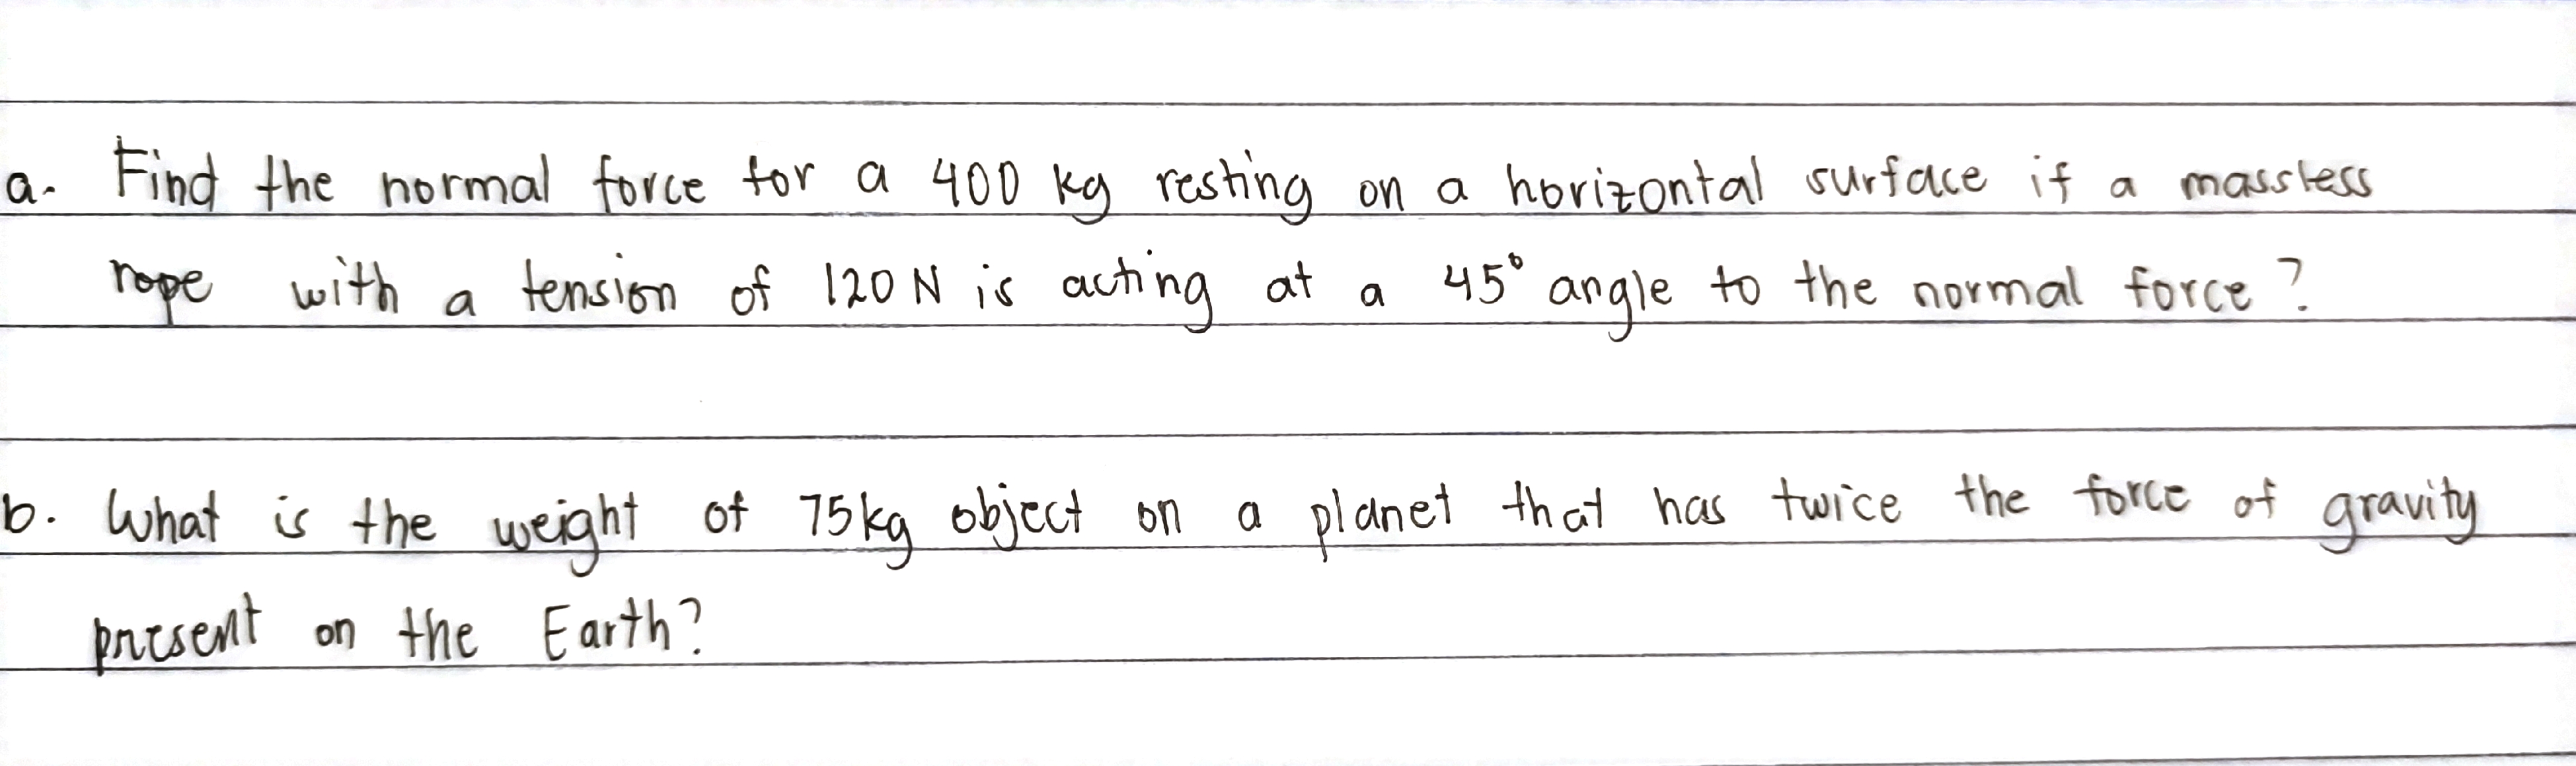 a. Find the normal force for a 400 kg resting on a horizontal surface if a massless
rope with a tension of 120 N is acting at a 45° angle to the normal force?
b. What is the weight of 75kg object on a planet that has twice the force of gravity
present on the Earth?